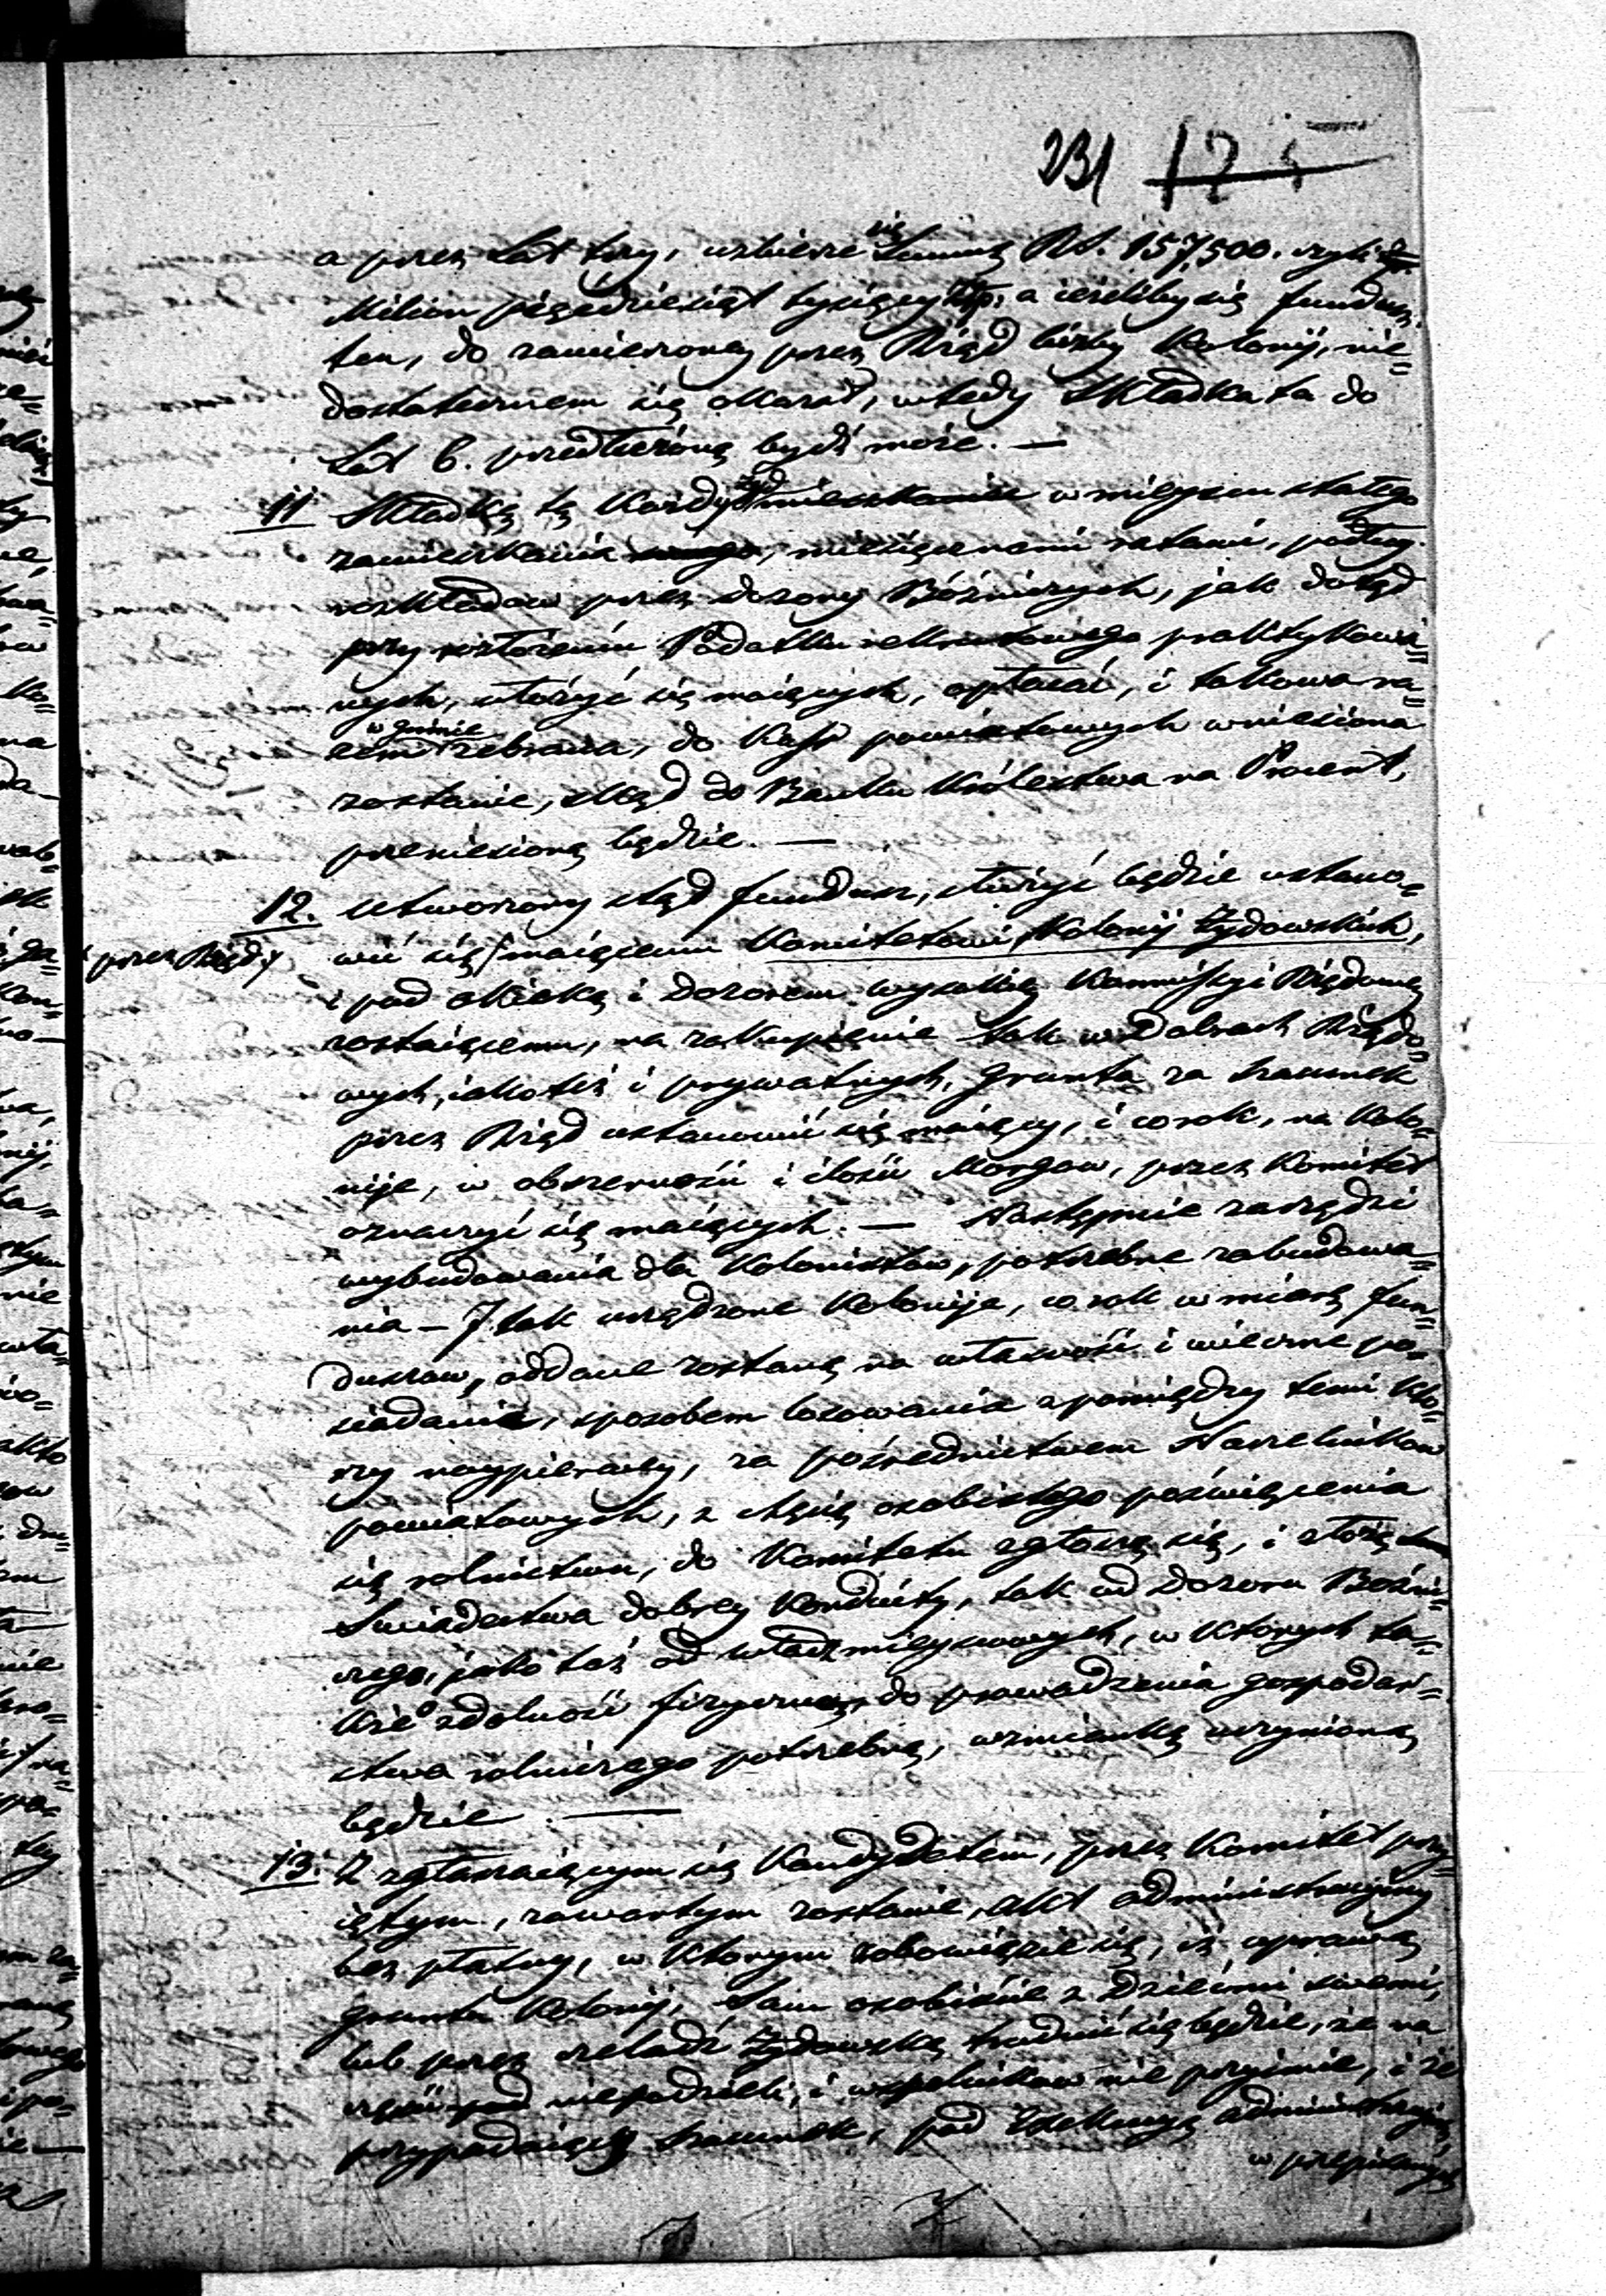 231 125
a przez Lat trzy, uzbierze się Summa RS. 157,500. czyli
Milion pięćdziesiąt tysięcy Złp. a jeśliby się fundusz
ten, do zamierzoney przez Rząd liczby Kolonij, nie=
dostatecznem się okazał, wtedy Składka ta do
Lat 6. przedłużoną bydź może. —
11 Składkę tę Każdy Żyd mieszkaniec w mieyscu stałego
zamieszkania swego, miesięcznemi ratami, podług
rozkładów przez dozory Bóżniczych, jak dotąd
przy rozłożeniu Podatku rekrutowego praktykowa=
nych, ułożyć się maiących, opłacać, i takowa ra=
zem w gminie zebrana, do Kass powiatowych wniesiona
zostanie, skąd do Banku Królestwa na Procent,
przeniesioną będzie. —
12. Utworzony stąd fundusz, służyć będzie ustano=
przez Rząd
wić się maiącemu Komitetowi Kolonij Żydowskich,
i pod opieką i dozorem wysokiey Kommissyi Rządowey
zostaiącemu, na zakupienie tak w Dobrach Rządo=
wych, jakoteż i prywatnych, Grunta za szacunek
przez Rząd ustanowić się maiący, i co rok, na Kolo=
nije, w obszerności i ilości Morgow, przez Komitet
oznaczyć się maiących. — Następnie zarządzi
wybudowania dla Kolonistow, potrzebne zabudowa=
nia — I tak urządzone Kolonije, co rok w miarę fun=
duszow, oddane zostaną na własność i wieczne po=
siadanie, sposobem losowania z pomiędzy temi Któ=
rzy naypierwey, za pośrednictwem Naczelnikow
powiatowych, z chęcią osobistego poświęcenia
się rolnictwu, do Komitetu zgłoszą się, i złożą
Swiadectwa dobrey Konduity, tak od Dozoru Bożni=
czego, jako też od władz mieyscowych, w Ktorych ta=
kże o zdolności fizyczney, do prowadzenia gospodar=
stwa rolniczego potrzebną, wzmianką uczynioną
będzie. —
13. Z zgłaszaiącym się Kandydatem, przez Komitet przy=
iętym, zawartym zostanie, akt administracyiny
bez płatny, w Ktorym zobowiąże się, iż uprawą
gruntu Kolonij, Sam osobiście z Dziećmi swemi,
lub przez czeladź Żydowską trudnić się będzie, że na
części niepodzieli, i wspolnikow nie przyimie, i że
przypadaiący szacunek, pod Exekucyą administracyiną
w przepisanych